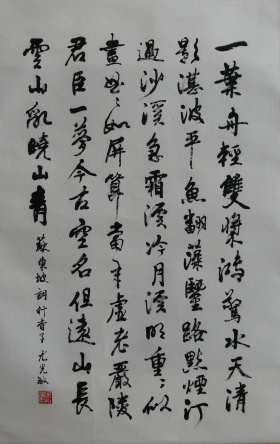 一葉舟輕雙槳鴻驚水天清
影湛波平魚翻藻鑒路點煙汀
過沙溪急霜溪冷月溪明重〻似
畫曲〻如屏算當年虛老嚴陵
君臣一夢今古空名但遠山長
雲山亂曉山青
蘇東坡詞行香子 尤光敏